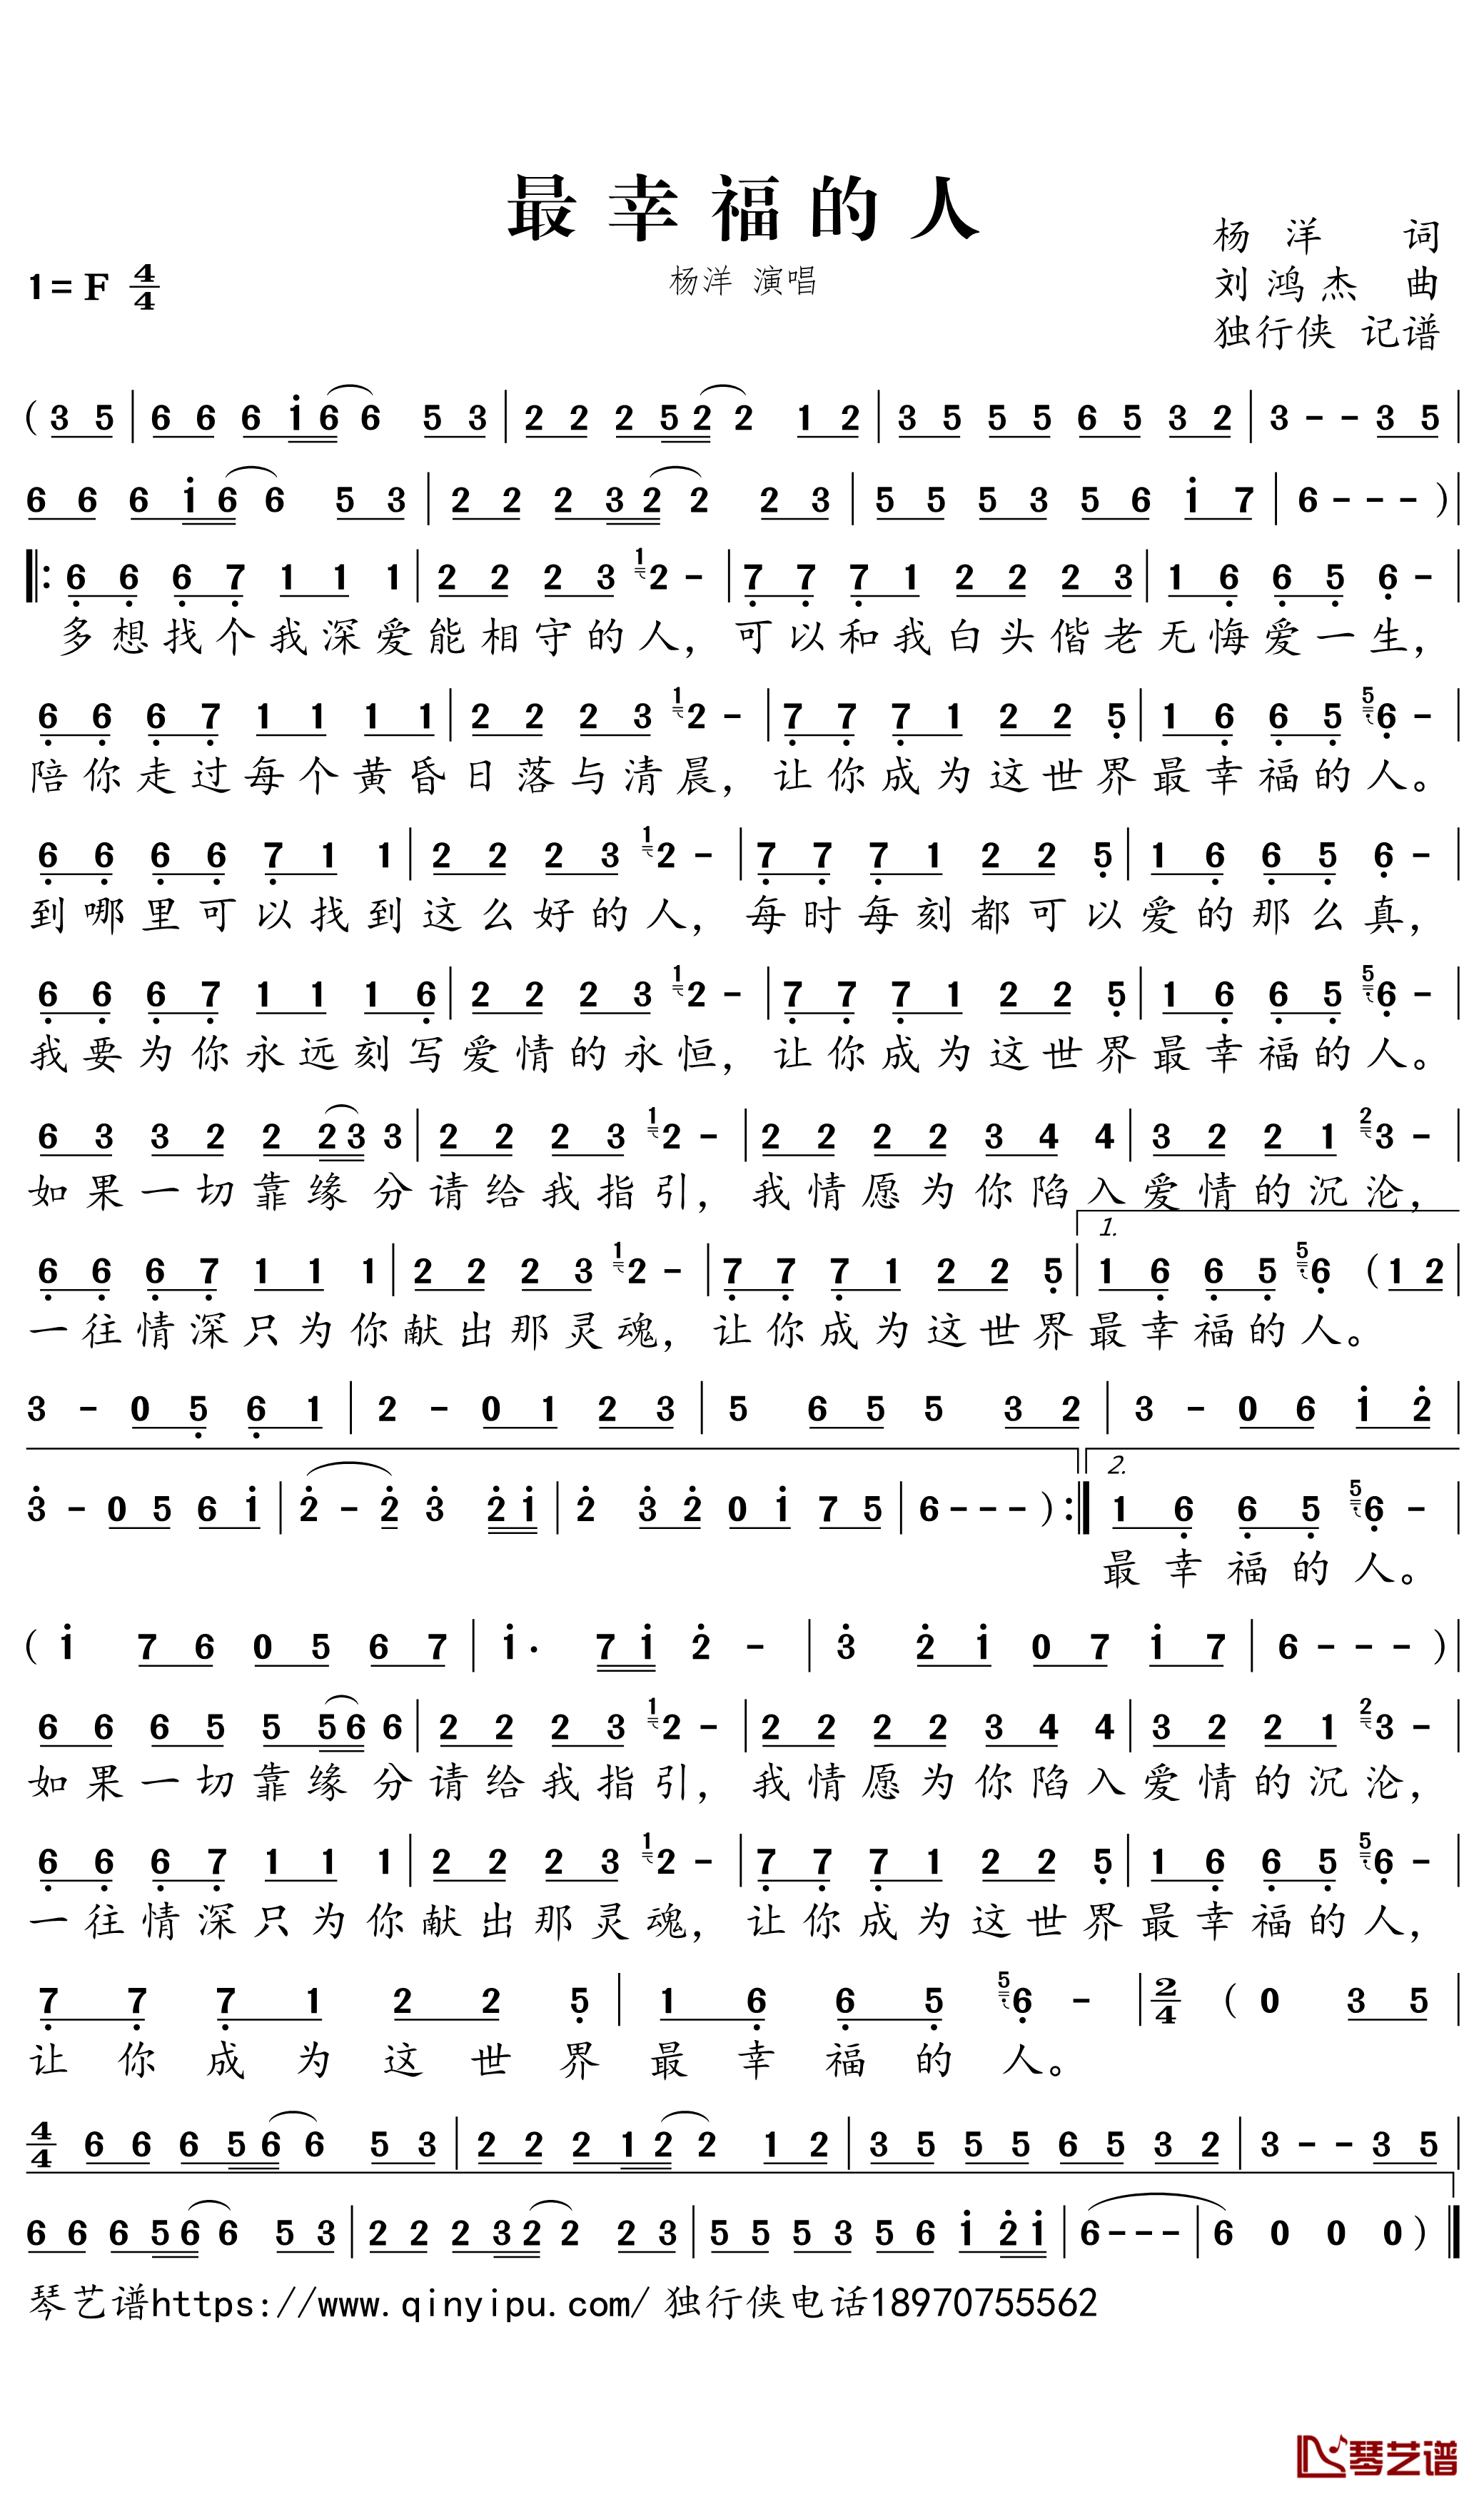 最幸福的人
杨洋 词
1=F 4/4
杨洋 演唱
刘鸿杰 曲
独行侠 记谱
( 3 5 | 6 6 6 i 6 6 5 3 | 2 2 2 5 2 2 1 2 | 3 5 5 5 6 5 3 2 | 3 - - 3 5 |
6 6 6 i 6 6 5 3 | 2 2 2 3 2 2 2 3 | 5 5 5 3 5 6 i 7 | 6 - - - ) |
‖: 6 6 6 7 1 1 1 | 2 2 2 3 1 2 - | 7 7 7 1 2 2 2 3 | 1 6 6 5 6 - |
多想找个我深爱能相守的人，可以和我白头偕老无悔爱一生，
6 6 6 7 1 1 1 1 | 2 2 2 3 1 2 - | 7 7 7 1 2 2 5 | 1 6 6 5 5 6 - |
陪你走过每个黄昏日落与清晨，让你成为这世界最幸福的人。
6 6 6 6 7 1 1 | 2 2 2 3 1 2 - | 7 7 7 1 2 2 5 | 1 6 6 5 6 - |
到哪里可以找到这么好的人，每时每刻都可以爱的那么真，
6 6 6 7 1 1 1 6 | 2 2 2 3 1 2 - | 7 7 7 1 2 2 5 | 1 6 6 5 5 6 - |
我要为你永远刻写爱情的永恒，让你成为这世界最幸福的人。
6 3 3 2 2 2 3 3 | 2 2 2 3 1 2 - | 2 2 2 2 3 4 4 | 3 2 2 1 2 3 - |
如果一切靠缘分请给我指引，我情愿为你陷入爱情的沉沦，
1.
6 6 6 7 1 1 1 | 2 2 2 3 1 2 - | 7 7 7 1 2 2 5 | 1 6 6 5 5 6 ( 1 2 |
一往情深只为你献出那灵魂，让你成为这世界最幸福的人。
3 - 0 5 6 1 | 2 - 0 1 2 3 | 5 6 5 5 3 2 | 3 - 0 6 i 2 |
2.
3 - 0 5 6 i | 2 - 2 3 2 i | 2 3 2 0 i 7 5 | 6 - - - ) :‖ 1 6 6 5 5 6 - |
最幸福的人。
( i 7 6 0 5 6 7 | i . 7 i 2 - | 3 2 i 0 7 i 7 | 6 - - - ) |
6 6 6 5 5 5 6 6 | 2 2 2 3 1 2 - | 2 2 2 2 3 4 4 | 3 2 2 1 2 3 - |
如果一切靠缘分请给我指引，我情愿为你陷入爱情的沉沦，
6 6 6 7 1 1 1 | 2 2 2 3 1 2 - | 7 7 7 1 2 2 5 | 1 6 6 5 5 6 - |
一往情深只为你献出那灵魂，让你成为这世界最幸福的人，
7 7 7 1 2 2 5 | 1 6 6 5 5 6 - | 2/4 ( 0 3 5 |
让你成为这世界最幸福的人。
4/4 6 6 6 5 6 6 5 3 | 2 2 2 1 2 2 1 2 | 3 5 5 5 6 5 3 2 | 3 - - 3 5 |
6 6 6 5 6 6 5 3 | 2 2 2 3 2 2 2 3 | 5 5 5 3 5 6 i 2 i | 6 - - - | 6 0 0 0 ) ‖
琴艺谱https://www.qinyipu.com/独行侠电话18970755562
琴艺谱